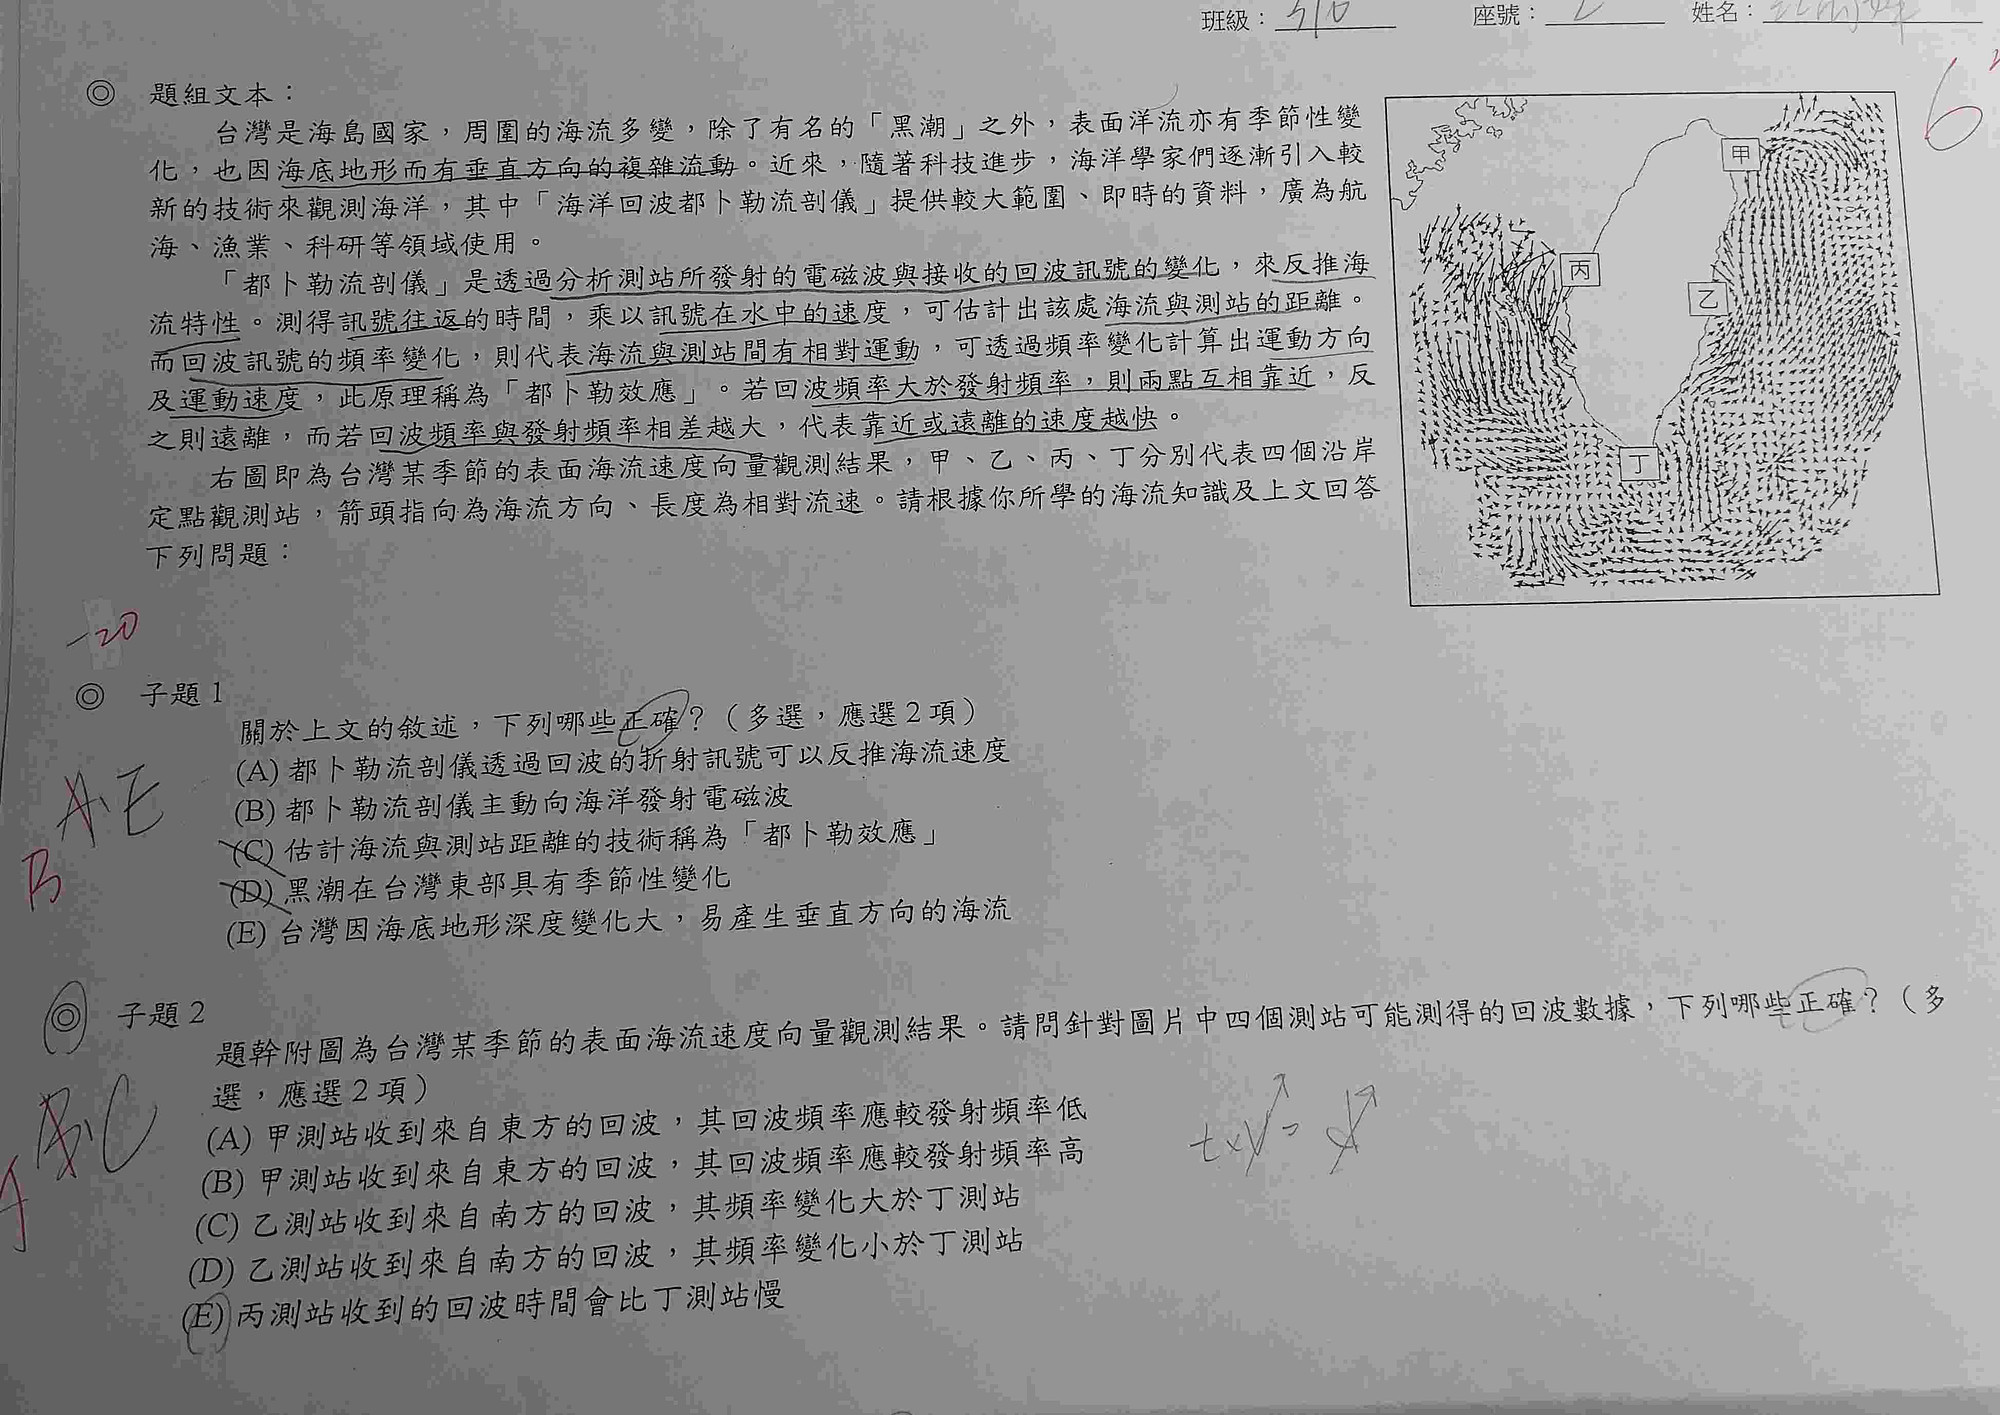 班級：310 座號：2 姓名：
◎ 題組文本：
6
台灣是海島國家，周圍的海流多變，除了有名的「黑潮」之外，表面洋流亦有季節性變
化，也因海底地形而有垂直方向的複雜流動。近來，隨著科技進步，海洋學家們逐漸引入較
新的技術來觀測海洋，其中「海洋回波都卜勒流剖儀」提供較大範圍、即時的資料，廣為航
海、漁業、科研等領域使用。
「都卜勒流剖儀」是透過分析測站所發射的電磁波與接收的回波訊號的變化，來反推海
流特性。測得訊號往返的時間，乘以訊號在水中的速度，可估計出該處海流與測站的距離。
而回波訊號的頻率變化，則代表海流與測站間有相對運動，可透過頻率變化計算出運動方向
及運動速度，此原理稱為「都卜勒效應」。若回波頻率大於發射頻率，則兩點互相靠近，反
之則遠離，而若回波頻率與發射頻率相差越大，代表靠近或遠離的速度越快。
右圖即為台灣某季節的表面海流速度向量觀測結果，甲、乙、丙、丁分別代表四個沿岸
定點觀測站，箭頭指向為海流方向、長度為相對流速。請根據你所學的海流知識及上文回答
下列問題：
甲
丙
乙
丁
-20
◎ 子題1
關於上文的敘述，下列哪些正確？（多選，應選2項）
(A) 都卜勒流剖儀透過回波的折射訊號可以反推海流速度
(B) 都卜勒流剖儀主動向海洋發射電磁波
(C) 估計海流與測站距離的技術稱為「都卜勒效應」
(D) 黑潮在台灣東部具有季節性變化
(E) 台灣因海底地形深度變化大，易產生垂直方向的海流
A、E
B
◎ 子題2
題幹附圖為台灣某季節的表面海流速度向量觀測結果。請問針對圖片中四個測站可能測得的回波數據，下列哪些正確？（多
選，應選2項）
(A) 甲測站收到來自東方的回波，其回波頻率應較發射頻率低
(B) 甲測站收到來自東方的回波，其回波頻率應較發射頻率高
(C) 乙測站收到來自南方的回波，其頻率變化大於丁測站
(D) 乙測站收到來自南方的回波，其頻率變化小於丁測站
(E) 丙測站收到的回波時間會比丁測站慢
B、C
A